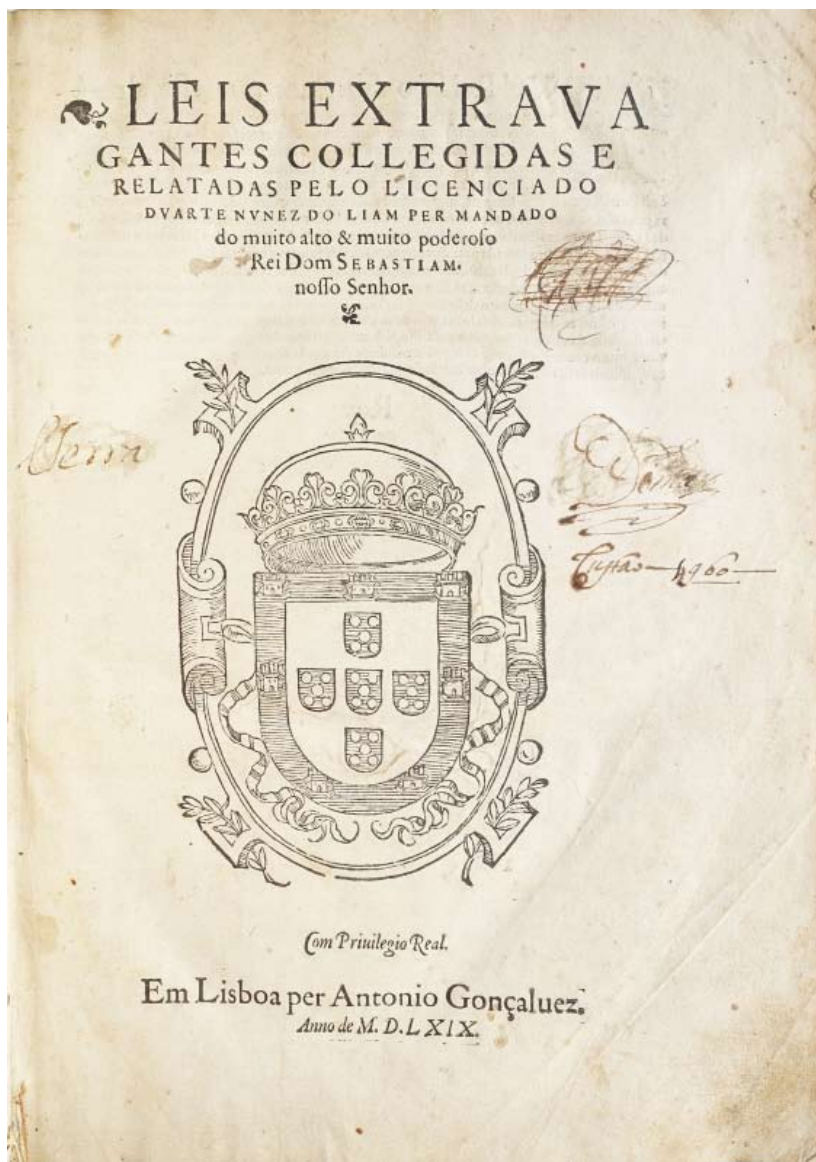 LEIS EXTRAVA
GANTES COLLEGIDAS E
RELATADAS PELO LICENCIADO
DVARTE NVNEZ DO LIAM PER MANDADO
do muito alto & muito poderoſo
Rei Dom SEBASTIAM.
noſſo Senhor.
Com Priuilegio Real.
Em Lisboa per Antonio Gonçaluez.
Anno de M. D. LXIX.